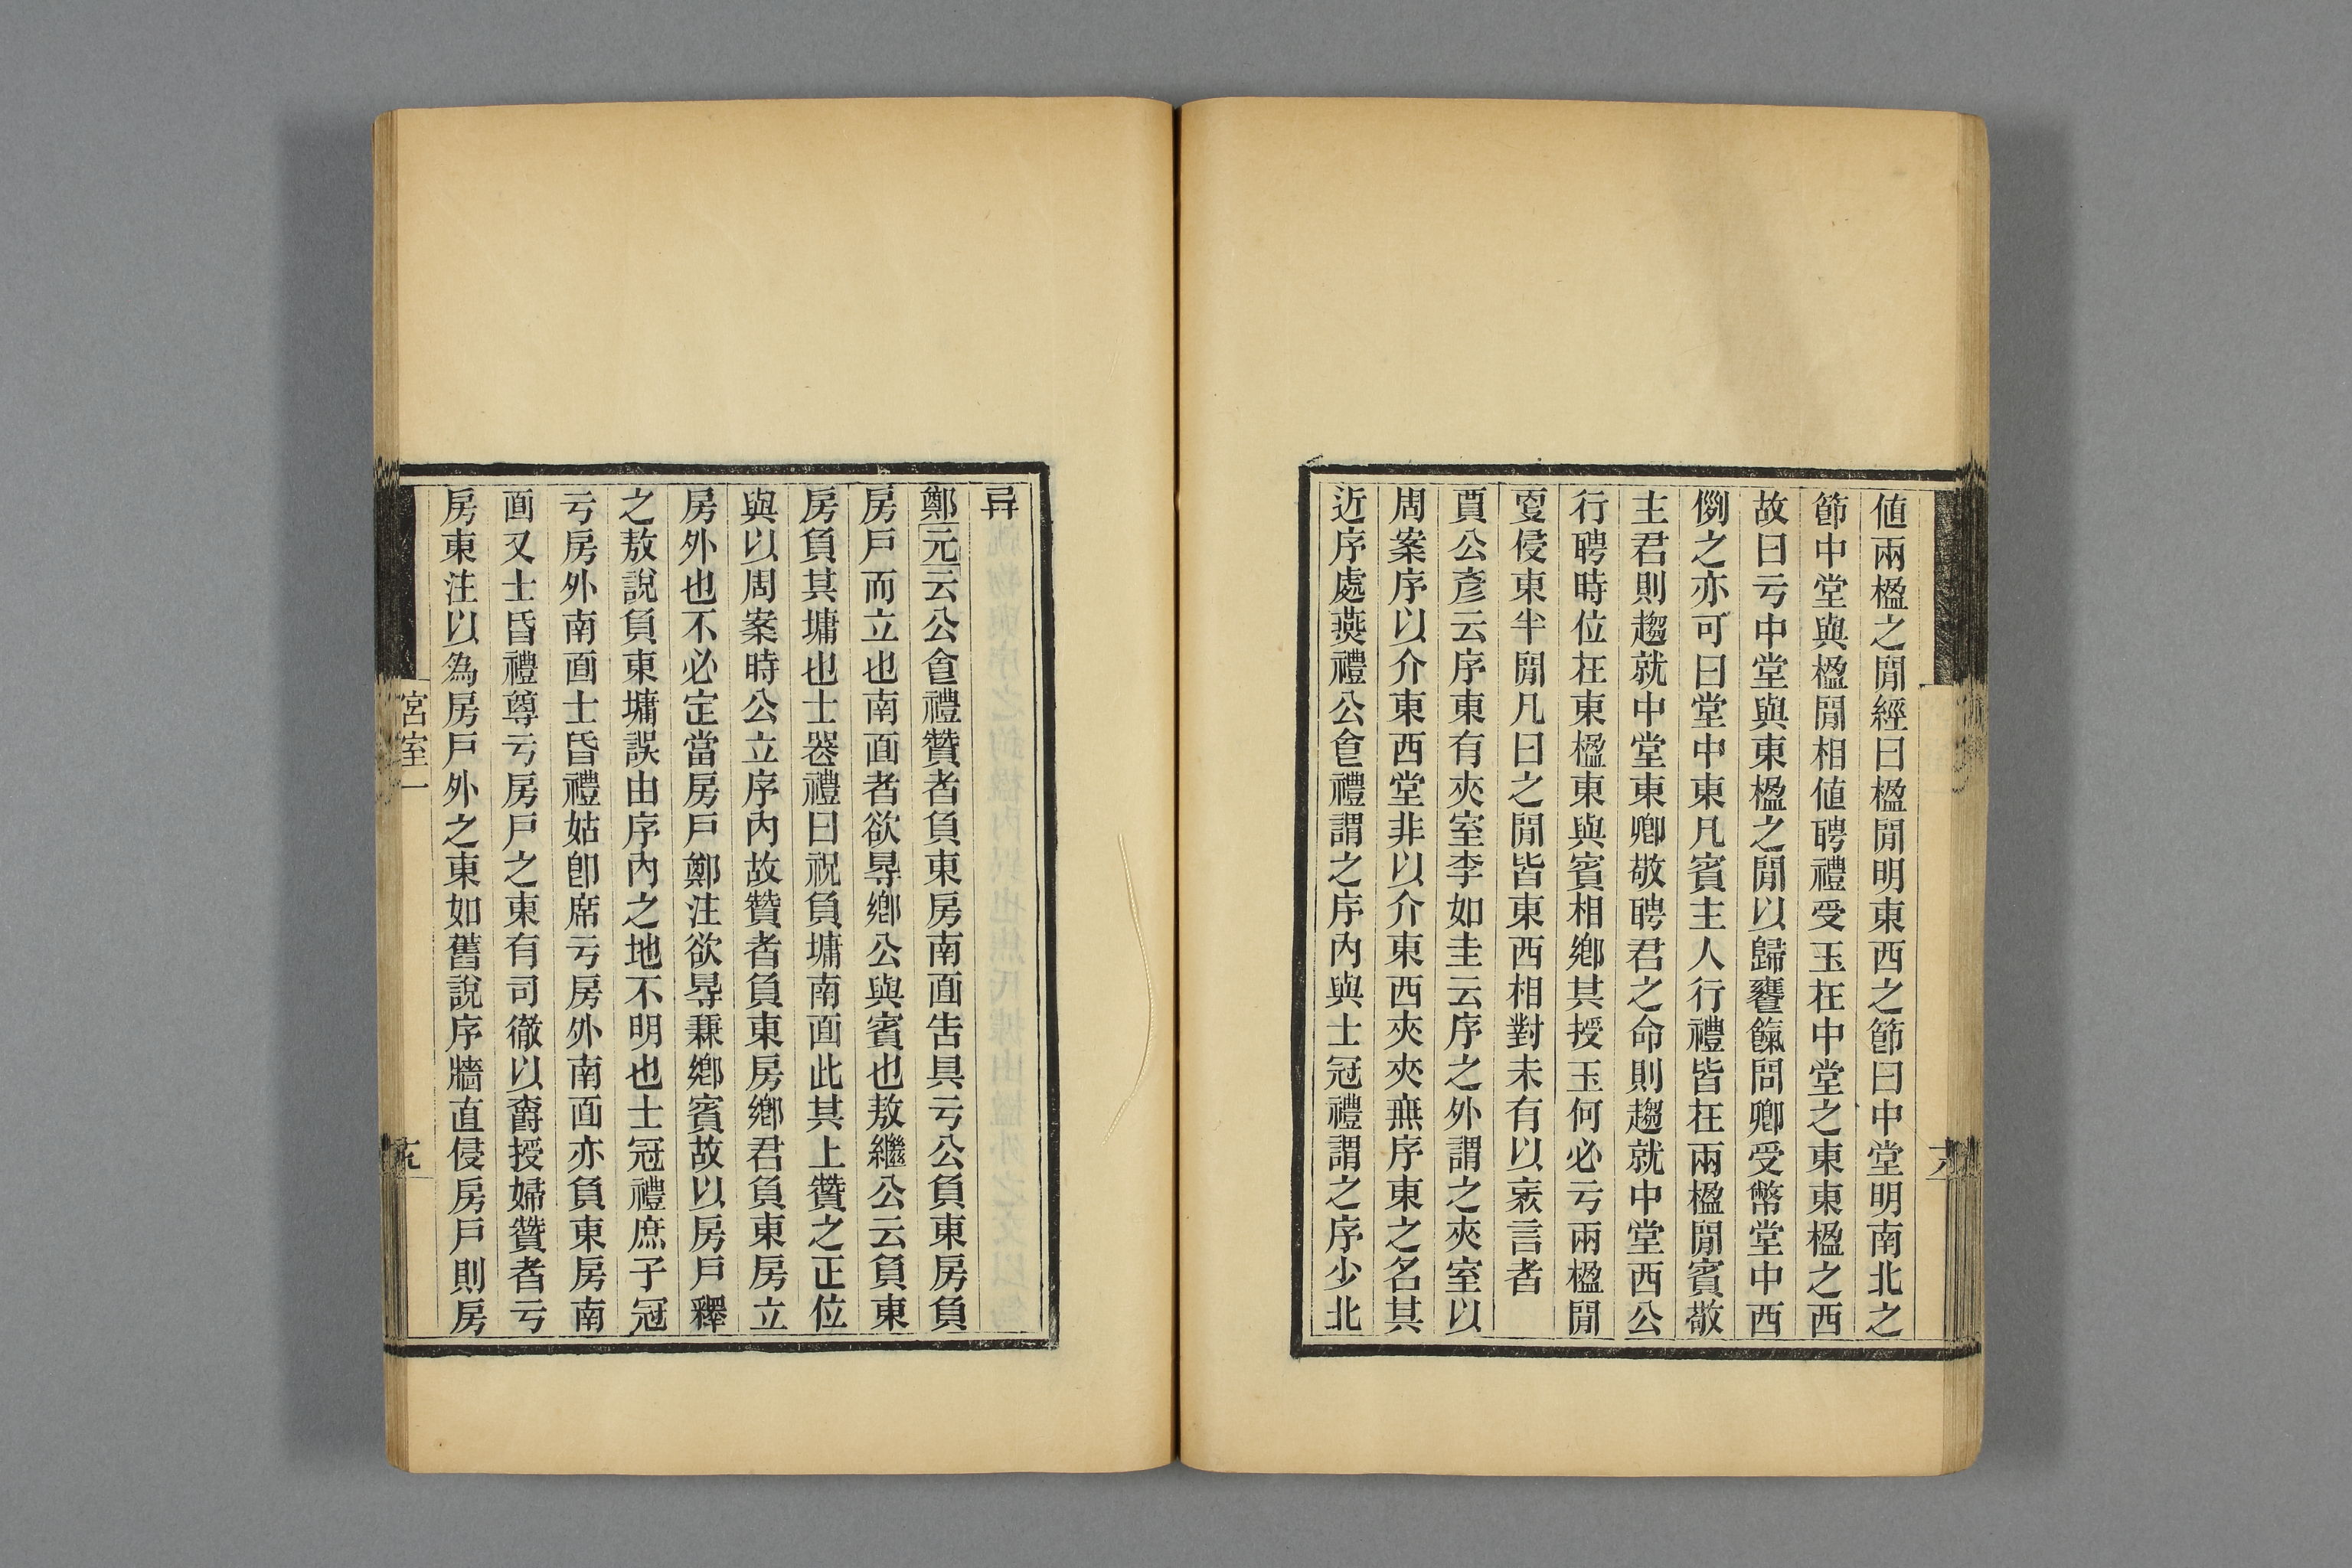 値兩楹之閒經曰楹閒明東西之節曰中堂明南北之
節中堂與楹閒相値聘禮受玉在中堂之東東楹之西
故曰亏中堂與東楹之閒以歸饔餼問卿受幣堂中西
例之亦可曰堂中東凡賓主人行禮皆在兩楹閒賓敵
主君則趨就中堂東卿敬聘君之命則趨就中堂西公
行聘時位在東楹東與賓相鄉其授玉何必亏兩楹閒
夏侵東半閒凡曰之閒皆東西相對未有以衺言者
賈公彥云序東有夾室李如圭云序之外謂之夾室以
周案序以介東西堂非以介東西夾夾無序東之名其
近序處燕禮公食禮謂之序內與士冠禮謂之序少北
异
鄭元云公食禮贊者負東房南面告具亏公負東房負
房戶而立也南面者欲㝵鄉公與賓也敖繼公云負東
房負其墉也士器禮曰祝負墉南面此其上贊之正位
與以周案時公立序內故贊者負東房鄉君負東房立
房外也不必定當房戶鄭注欲㝵兼鄉賓故以房戶釋
之敖說負東墉誤由序內之地不明也士冠禮庶子冠
亏房外南面士昏禮姑卽席亏房外南面亦負東房南
面又士昏禮尊亏房戶之東有司徹以爵授婦贊者亏
房東注以爲房戶外之東如舊說序牆直侵房戶則房
宮室一
十九